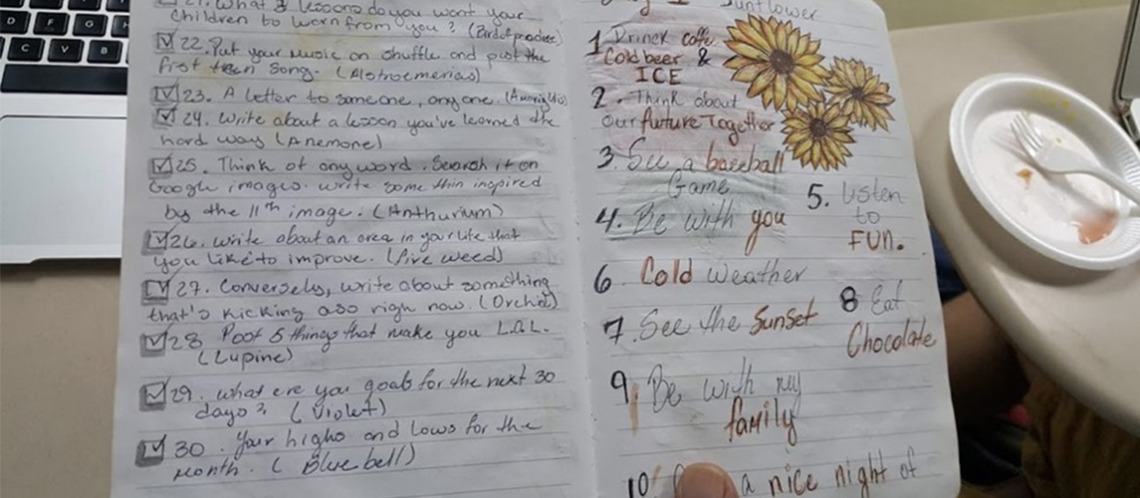 21. What 3 lessons do you want your
children to worn from you? (Bird of
22. Put your music on shuffle and post the
first ten song. (Alstroemerias)
23. A letter to someone, anyone.
24. Write about a lesson you've learned the
hard way (Anemone)
25. Think of any word. Search it on
Google images. write some thin inspired
by the 11th image. (Anthurium)
26. Write about an area in your life that
you like to improve. (fire weed)
27. Conversely, write about something
that's kicking ass righ now. (Orchid)
28 Post 5 things that make you L.O.L.
(Lupine)
29. what are you goals for the next 30
days? (Violet)
30. Your highs and lows for the
month. (Bluebell)
Sunflower
1 Drinck coffe
Cold beer &
ICE
2. Think about
our future Together
3. See a baseball
Game
4. Be with you
5. Listen
to
FUN.
6 Cold weather
7. See the Sunset
8 Eat
Chocolate
9. Be with my
family
10 a nice night of
D F G H
C V B